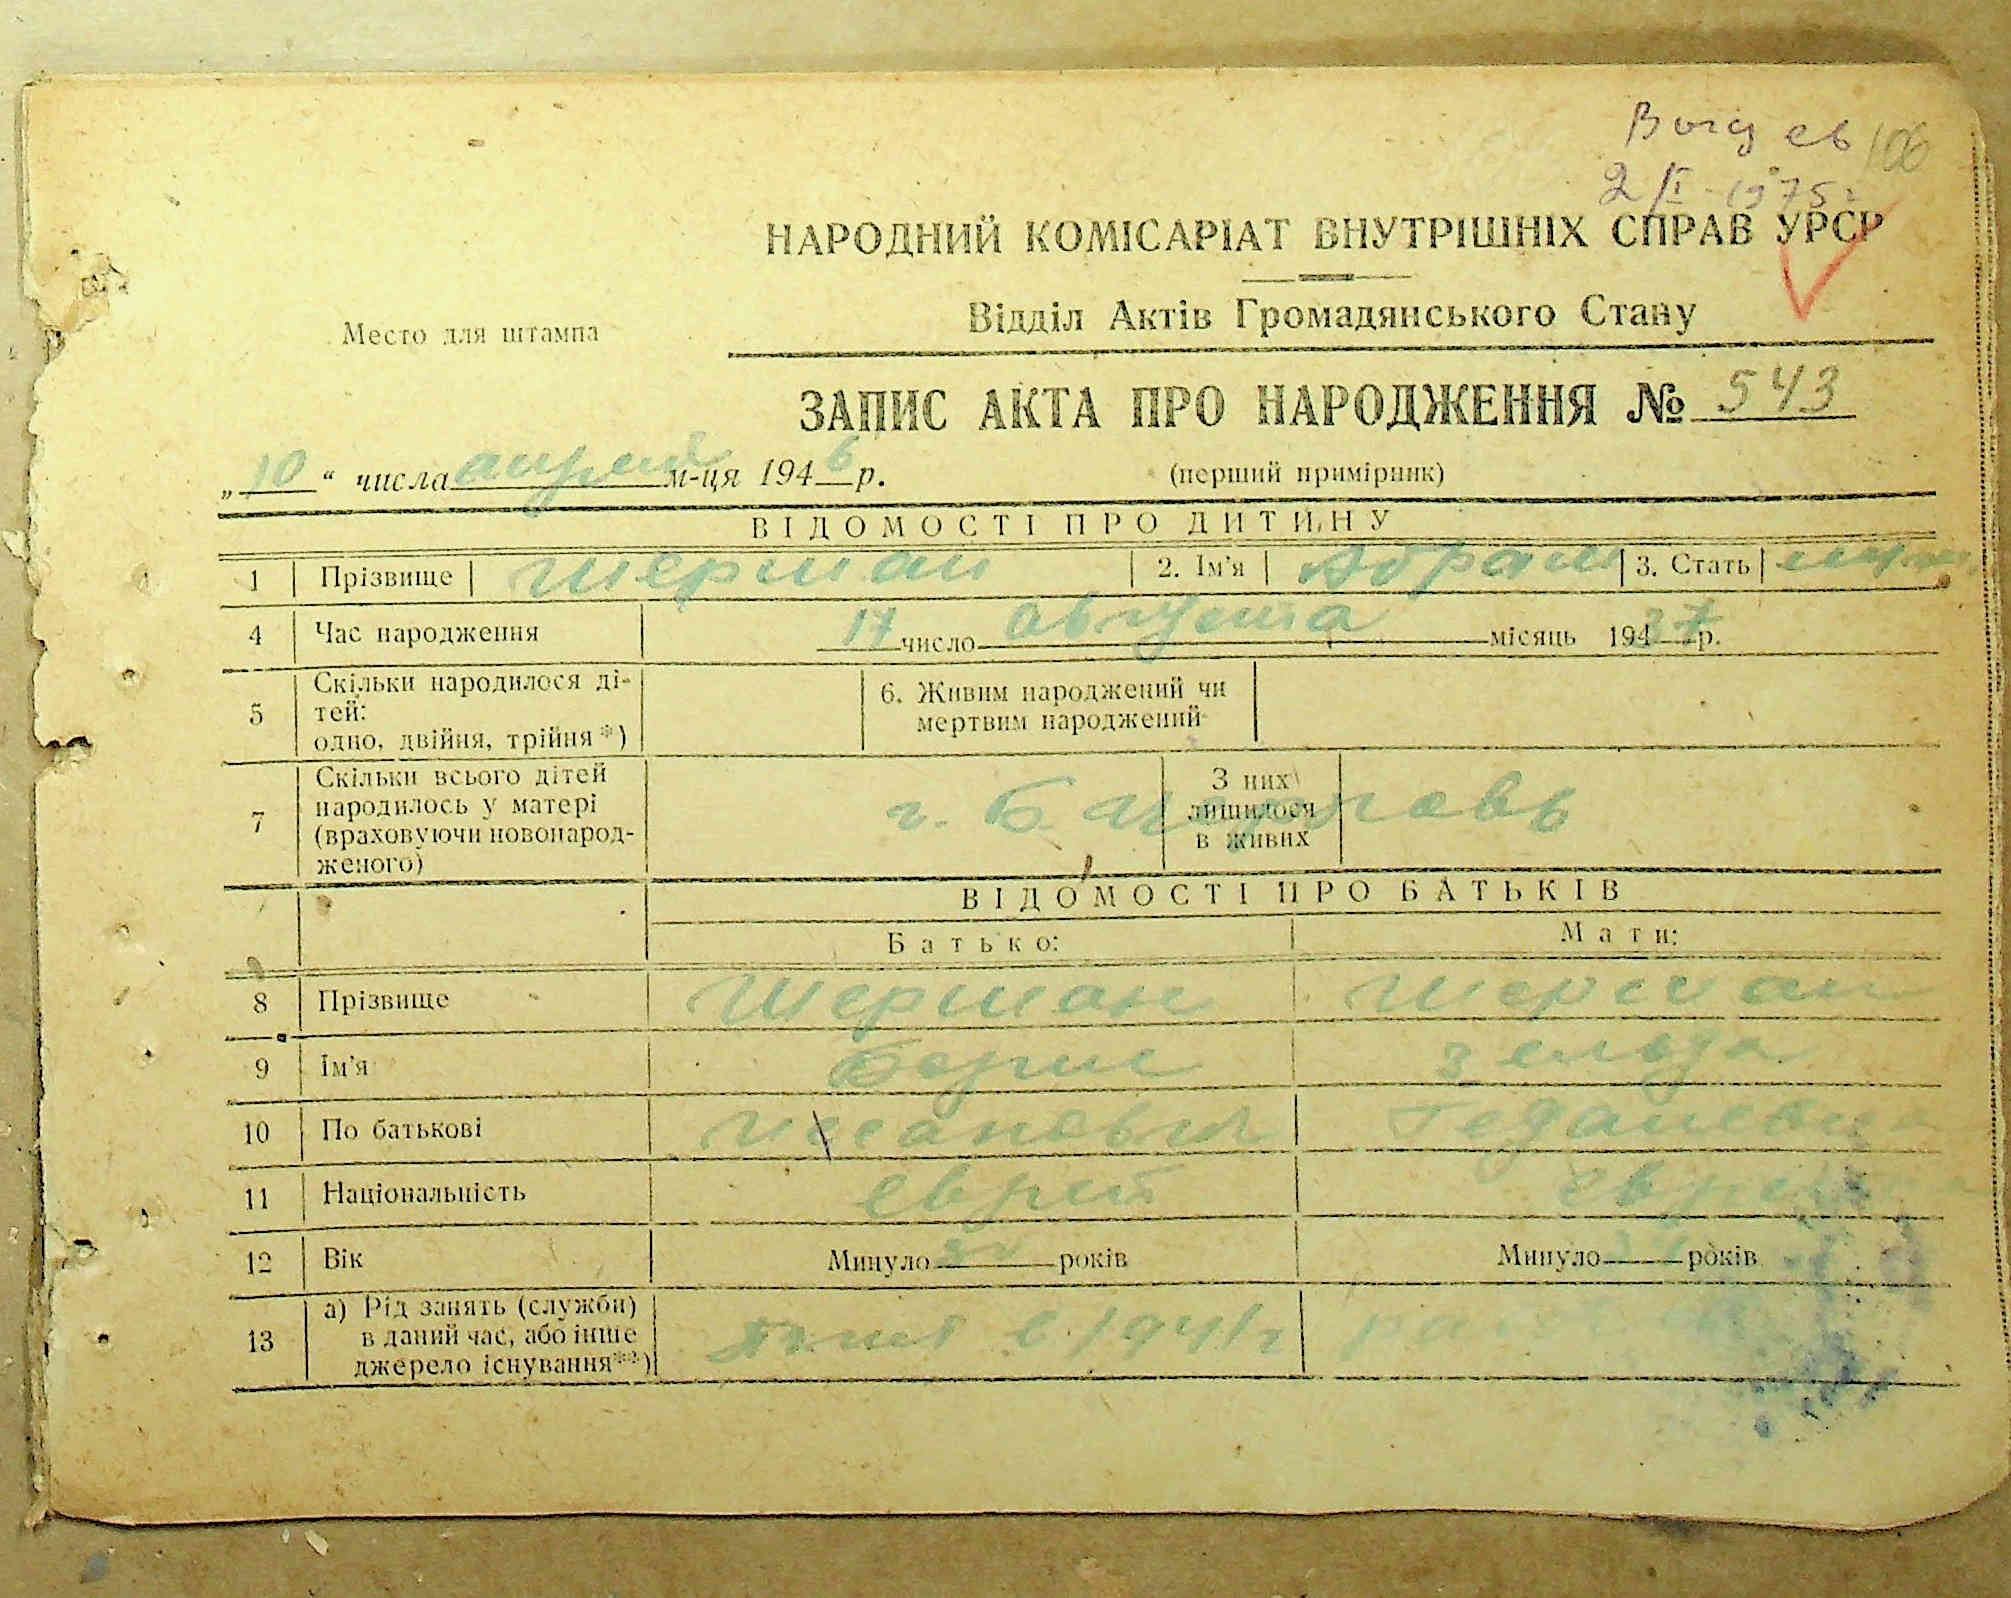 106
2/I-1975г
НАРОДНИЙ КОМІСАРІАТ ВНУТРІШНІХ СПРАВ УРСР
Відділ Актів Громадянського Стану
Место для штампа
ЗАПИС АКТА ПРО НАРОДЖЕННЯ № 543
„10“ числа апрель м-ця 1946 р. (перший примірник)
ВІДОМОСТІ ПРО ДИТИНУ
1 Прізвище Шерман 2. Ім'я Абрам 3. Стать муж
4 Час народження 17 число августа місяць 19437 р.
5 Скільки народилося ді-
тей:
одно, двійня, трійня*)
6. Живим народжений чи
мертвим народжений
7 Скільки всього дітей
народилось у матері
(враховуючи новонарод-
женого)
г. Б. Церковь
З них
лишилося
в живих
ВІДОМОСТІ ПРО БАТЬКІВ
Батько: Мати:
8 Прізвище Шерман Шерман
9 Ім'я Борис Зельда
10 По батькові
11 Національність еврей еврей
12 Вік Минуло років Минуло років
13 а) Рід занять (служби)
в даний час, або інше
джерело існування**)
1941г